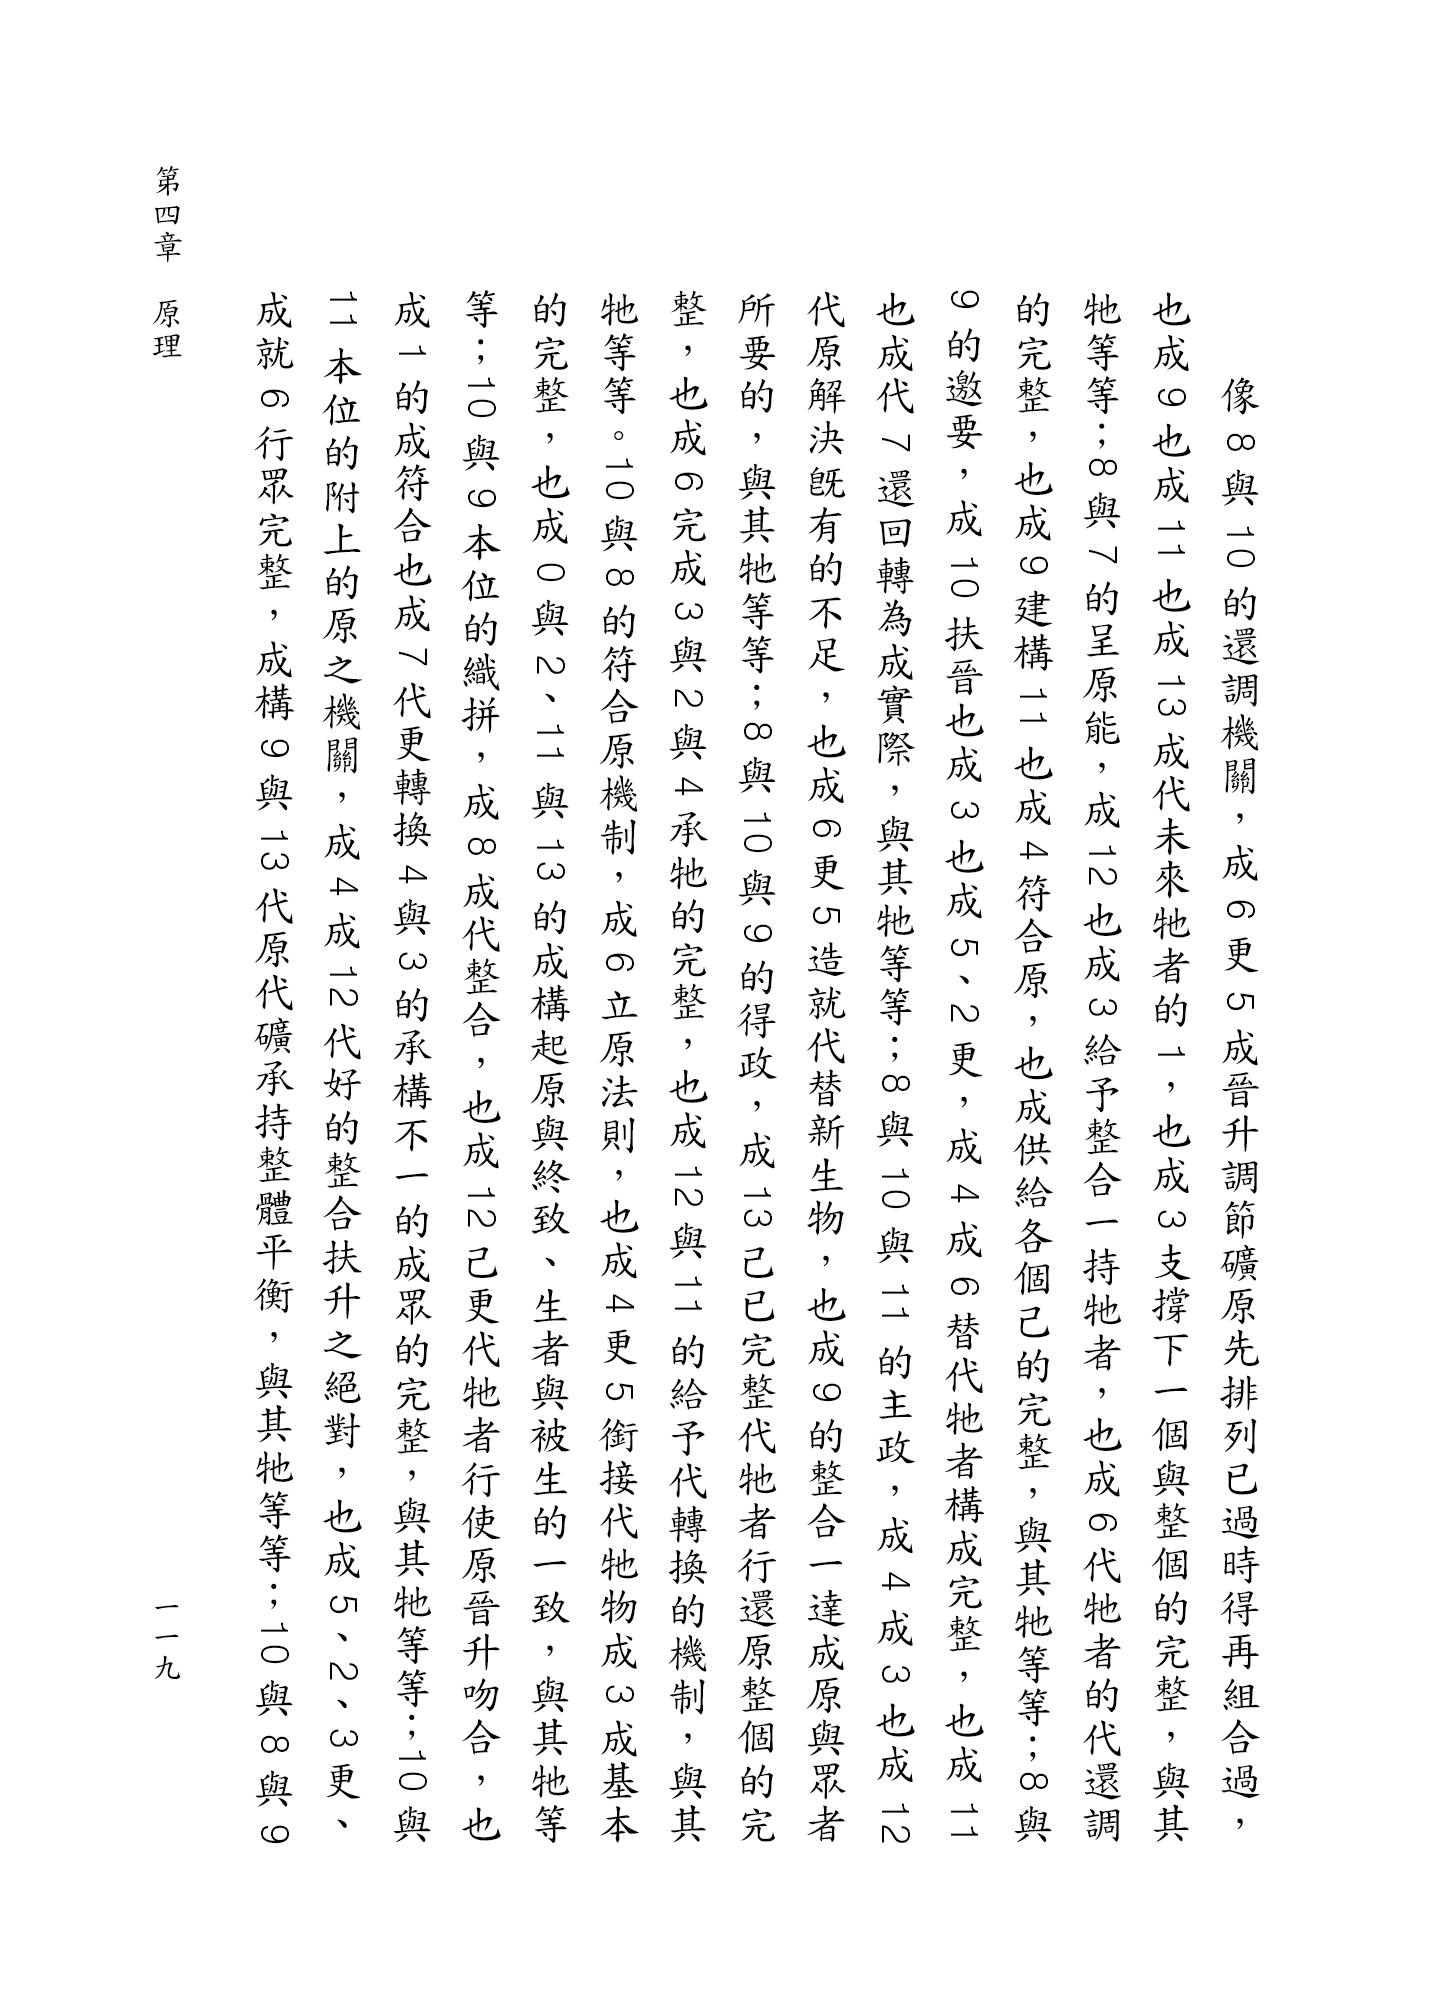 像8與10的還調機關，成6更5成晉升調節礦原先排列已過時得再組合過，
也成9也成11也成13成代未來牠者的1，也成3支撐下一個與整個的完整，與其
牠等等；8與7的呈原能，成12也成3給予整合一持牠者，也成6代牠者的代還調
的完整，也成9建構11也成4符合原，也成供給各個己的完整，與其牠等等；8與
9的邀要，成10扶晉也成3也成5、2更，成4成6替代牠者構成完整，也成11
也成代7還回轉為成實際，與其牠等等；8與10與11的主政，成4成3也成12
代原解決既有的不足，也成6更5造就代替新生物，也成9的整合一達成原與眾者
所要的，與其牠等等；8與10與9的得政，成13己已完整代牠者行還原整個的完
整，也成6完成3與2與4承牠的完整，也成12與11的給予代轉換的機制，與其
牠等等。10與8的符合原機制，成6立原法則，也成4更5銜接代牠物成3成基本
的完整，也成0與2、11與13的成構起原與終致、生者與被生的一致，與其牠等
等；10與9本位的織拼，成8成代整合，也成12己更代牠者行使原晉升吻合，也
成1的成符合也成7代更轉換4與3的承構不一的成眾的完整，與其牠等等；10與
11本位的附上的原之機關，成4成12代好的整合扶升之絕對，也成5、2、3更、
成就6行眾完整，成構9與13代原代礦承持整體平衡，與其牠等等；10與8與9
第四章　原理
一一九